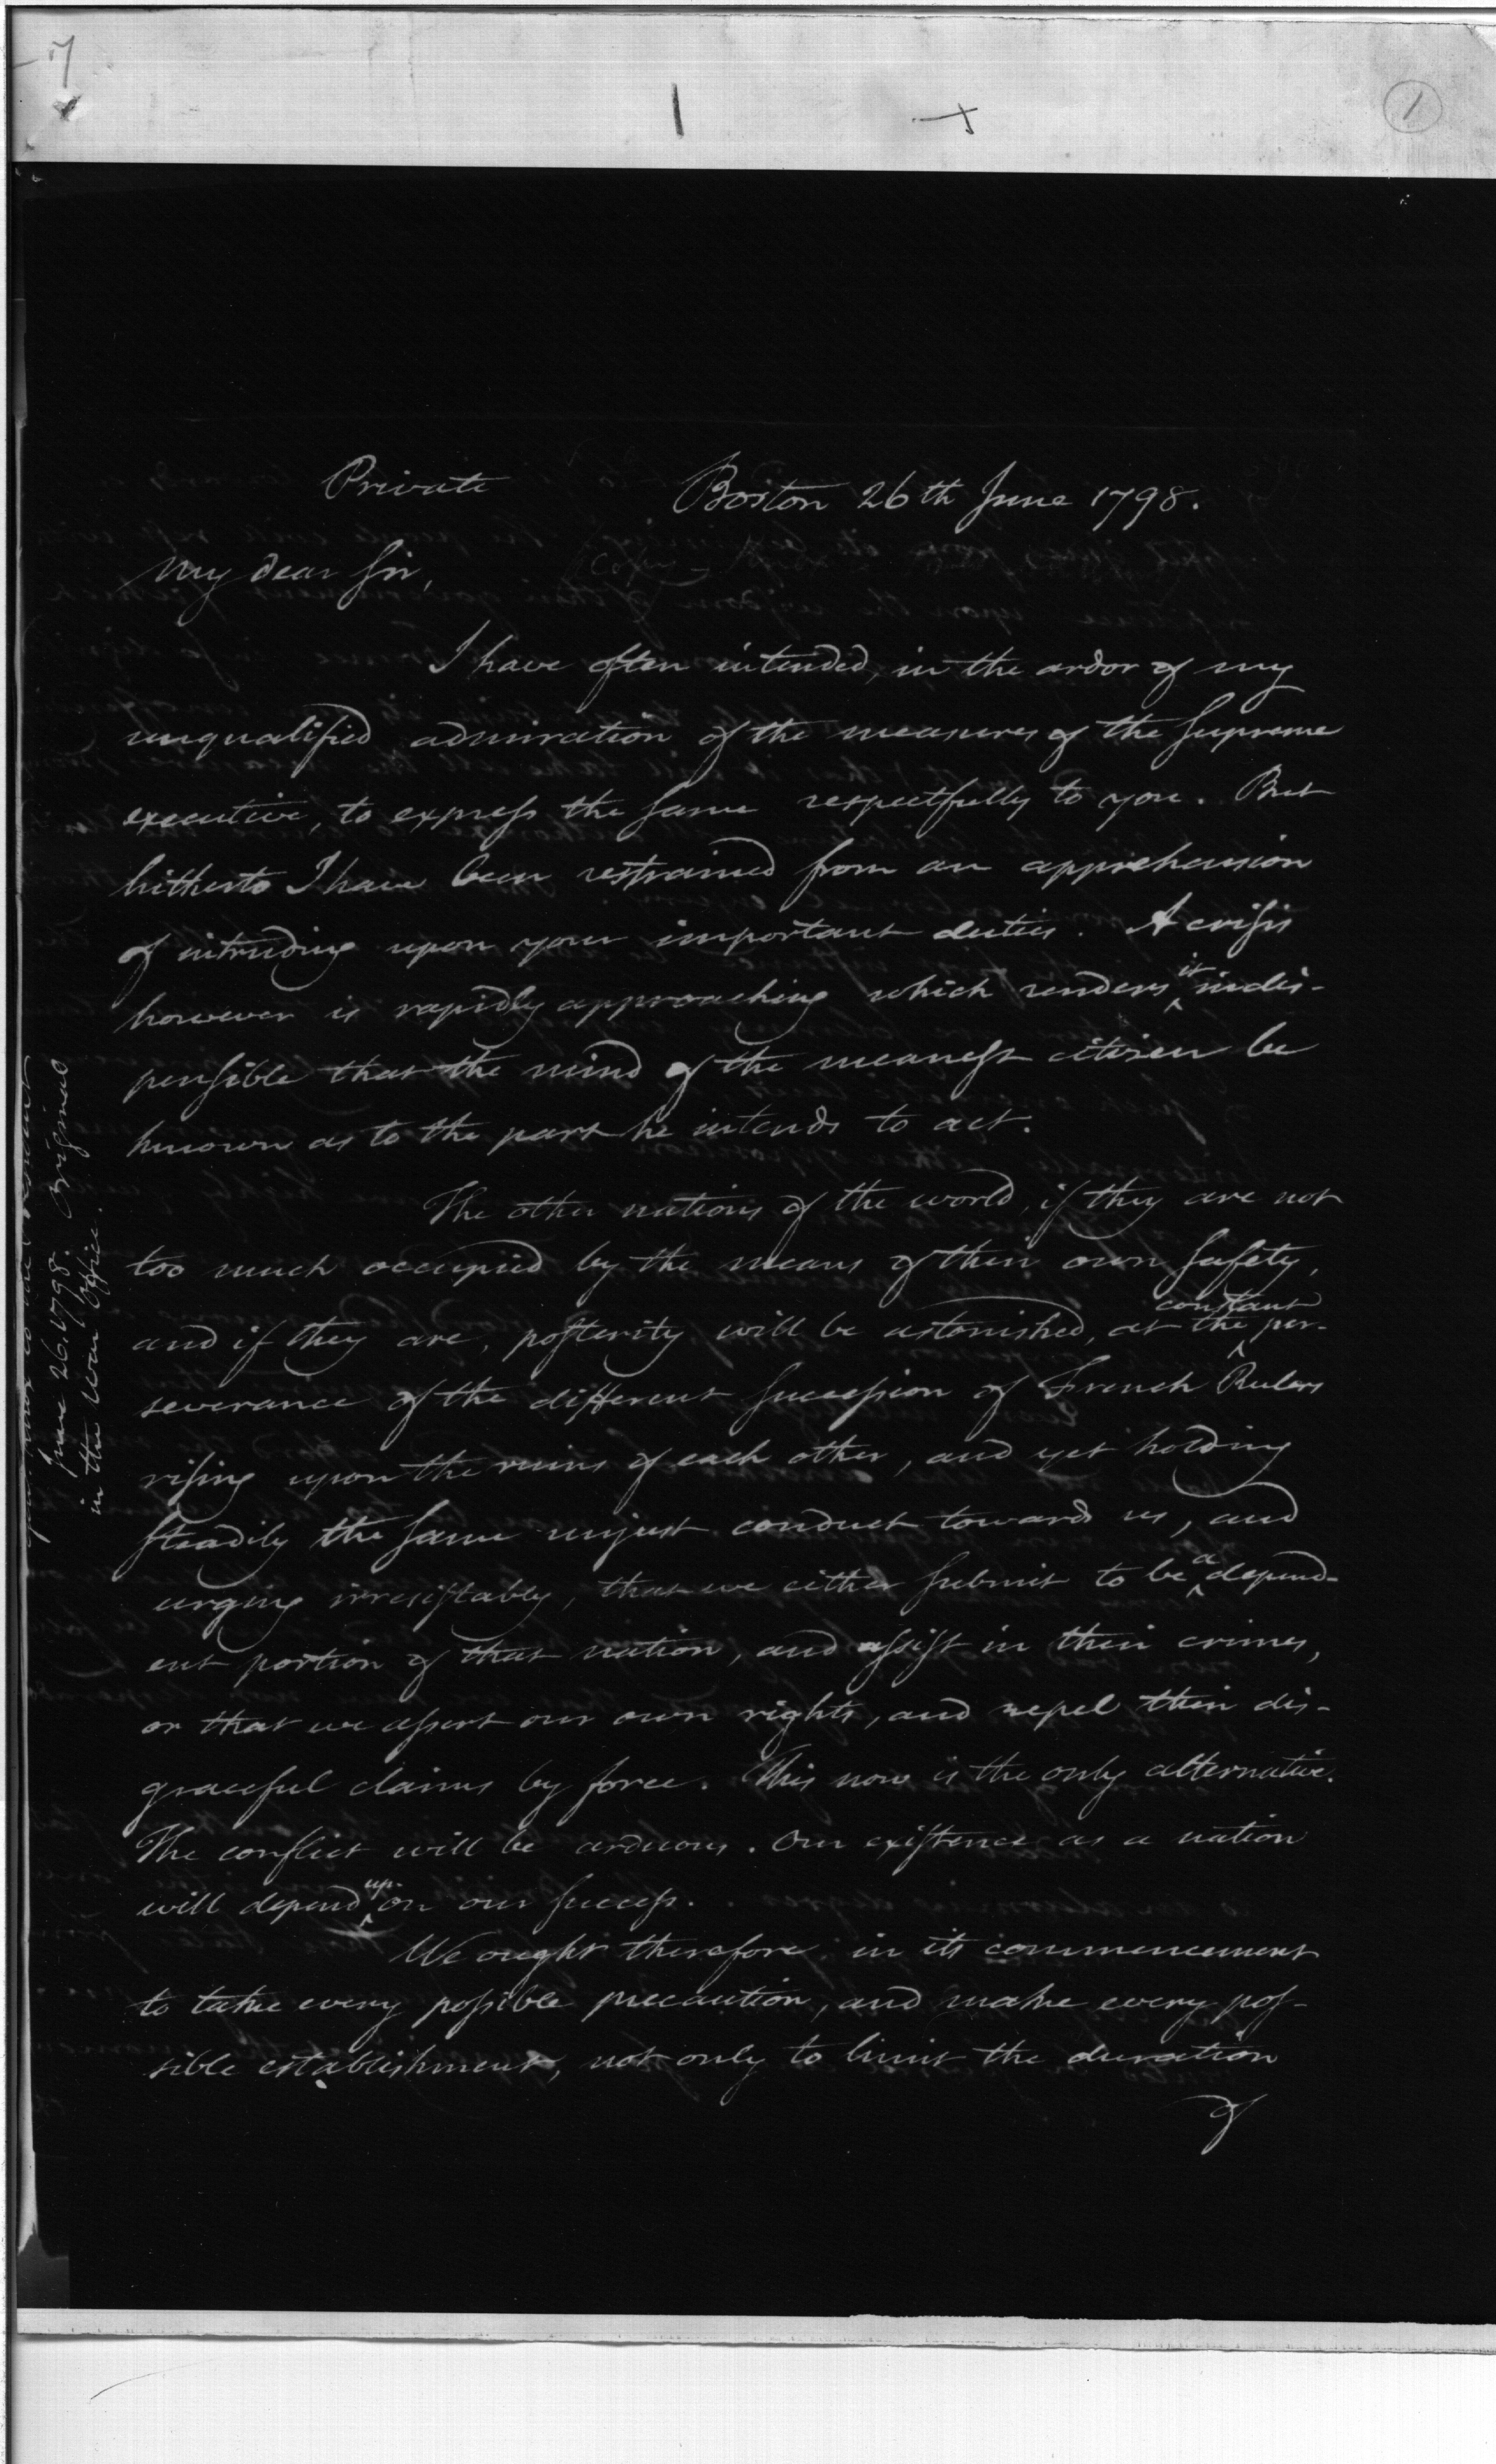 1
Private Boston 26th June 1798.
My dear Sir,
I have often intended, in the ardor of my
unqualified admiration of the measures of the Supreme
executive, to express the same respectfully to you. But
hitherto I have been restrained from an apprehension
of intruding upon your important duties. A crisis
however is rapidly approaching which renders it indis-
pensible that the mind of the meanest citizen be
known as to the part he intends to act.
The other nations of the world, if they are not
too much occupied by the means of their own safety,
and if they are, posterity will be astonished, at the constant per-
severance of the different succession of French Rulers
rising upon the ruins of each other, and yet holding
steadily the same unjust conduct towards us, and
urging irresistably, that we either submit to be a depend-
ent portion of that nation, and assist in their crimes,
or that we assert our own rights, and repel their dis-
graceful claims by force. This now is the only alternative.
The conflict will be arduous. Our existence as a nation
will depend up-on our success.
We ought therefore in its commencement
to take every possible precaution, and make every pos-
sible establishment, not only to limit the duration
of
June 26. 1798. Original
in the War Office.